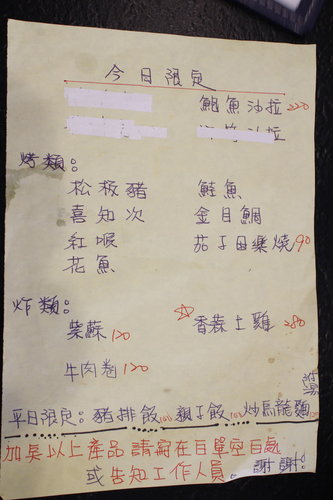 今日限定
鮑魚沙拉220
沙拉
烤類:
松板豬 鮭魚
喜知次 金目鯛
紅喉 茄子田樂燒90
花魚
炸類:
紫蘇120 ☆香蒜土雞280
牛肉卷120
平日限定:豬排飯 親子飯 炒烏龍麵
加点以上產品請寫在白單空白處
或告知工作人員。謝謝!